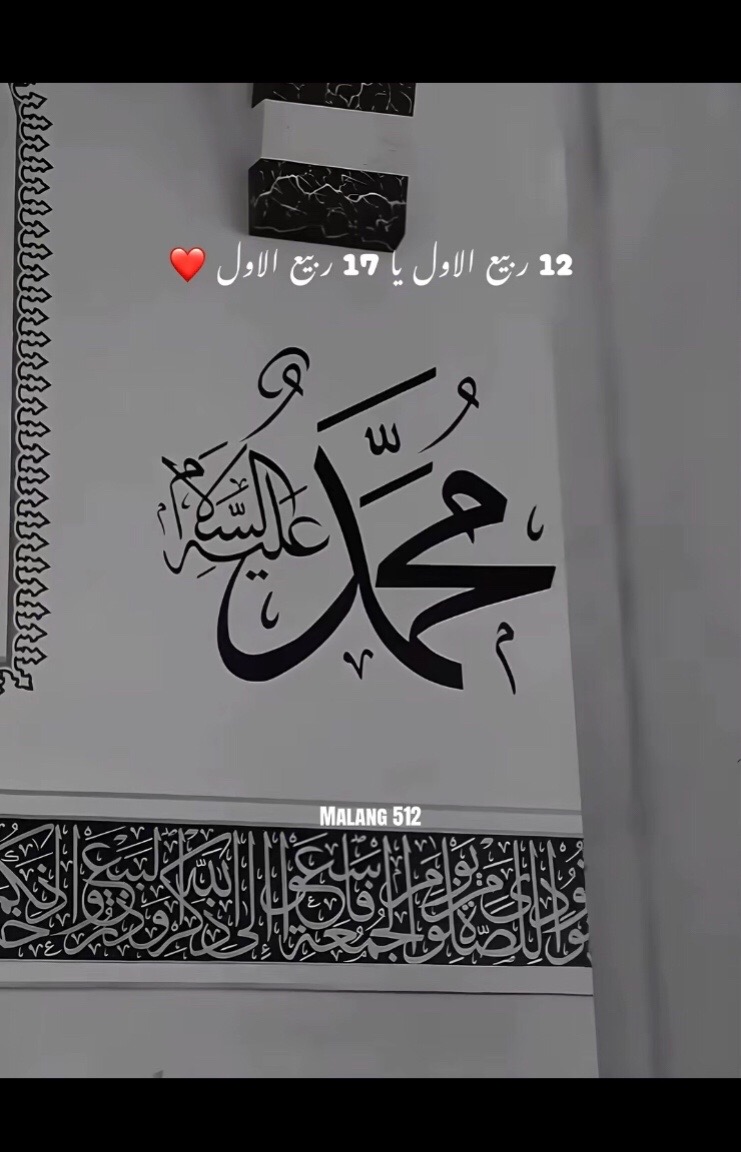 12 ربیع الاول یا 17 ربیع الاول ❤️
مُحَمَّد عَلَيْهِ السَّلَام
MALANG 512
نُودِيَ لِلصَّلَوٰةِ مِن يَوْمِ الْجُمُعَةِ فَاسْعَوْا إِلَىٰ ذِكْرِ اللَّهِ وَذَرُوا الْبَيْعَ